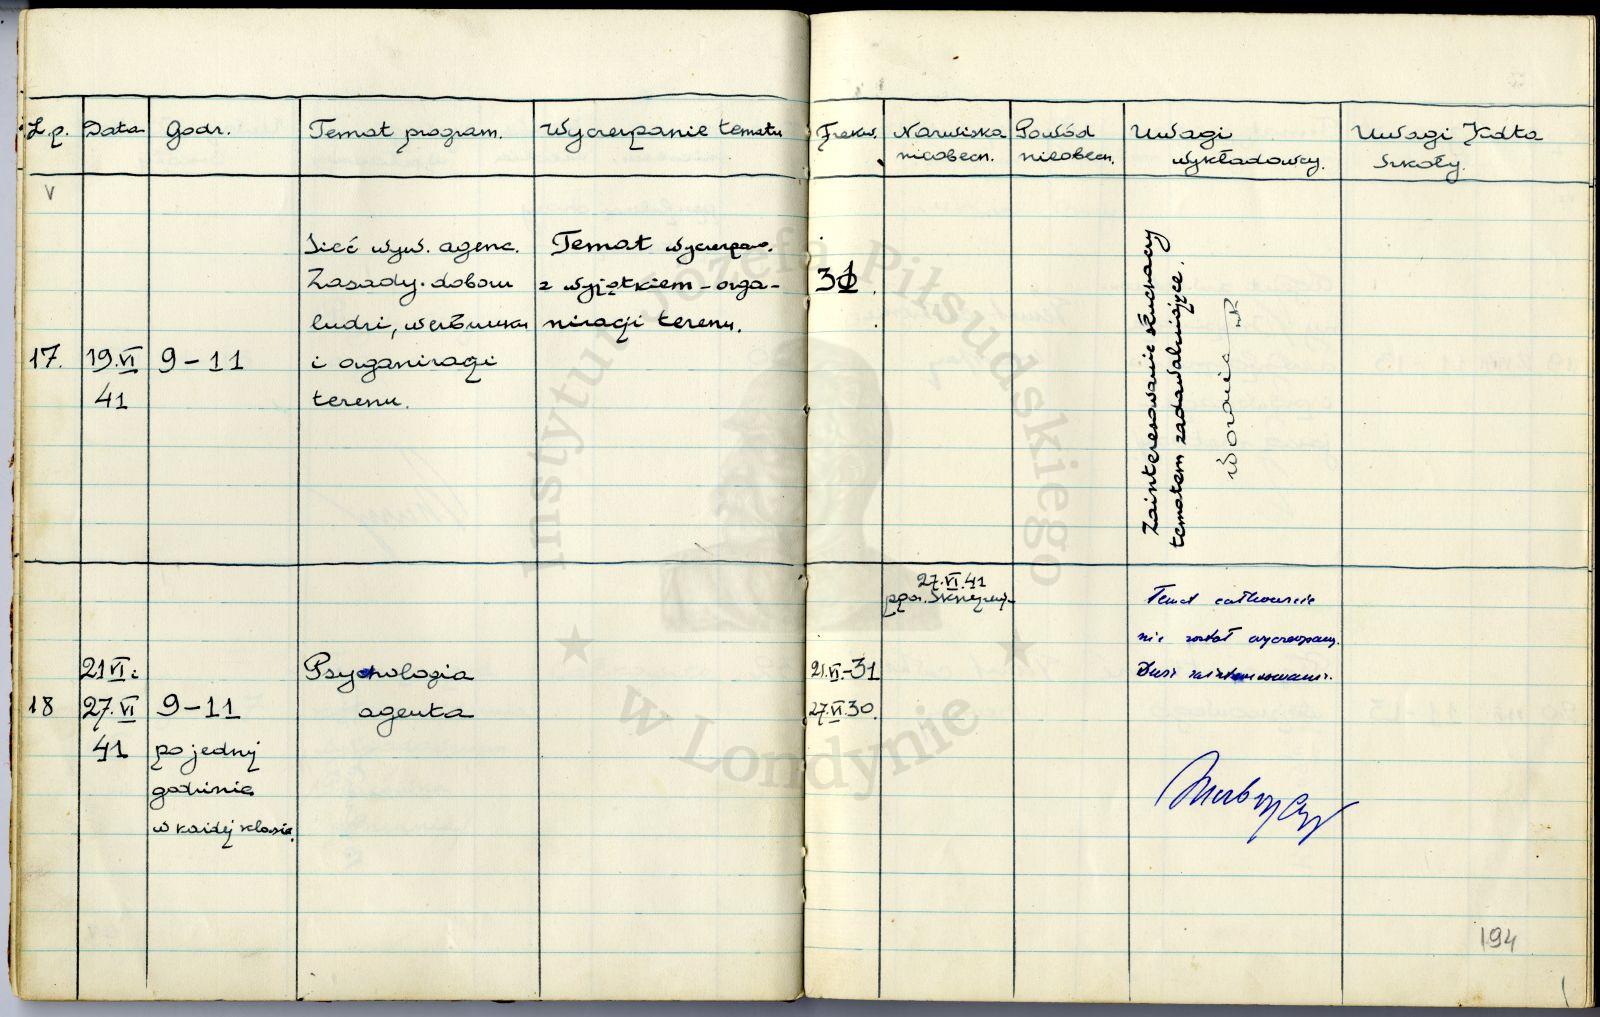 L.p. Data Godz. Temat program. Wyczerpanie tematu Frekw. Nazwiska nieobecn. Powód nieobecn. Uwagi wykładowcy. Uwagi Kdta Szkoły.
V
Sieć wyw. agenc.
Zasady doboru
ludzi, werbunku
i organizacji
terenu.
17. 19.VI 41 9-11
Temat wyczerpano.
z wyjątkiem - orga-
nizacji terenu.
31.
Zainteresowanie słuchaczy
tematem zadawalniające.
18 21 VI i
27. VI
41
9-11
po jednej
godzinie
w każdej klasie.
Psychologia
agenta
21.VI.-31
27.VI.30.
27.VI.41
ppor.
Temat całkowicie
nie został wyczerpany.
Duże zainteresowanie.
194
Instytut Józefa Piłsudskiego
w Londynie